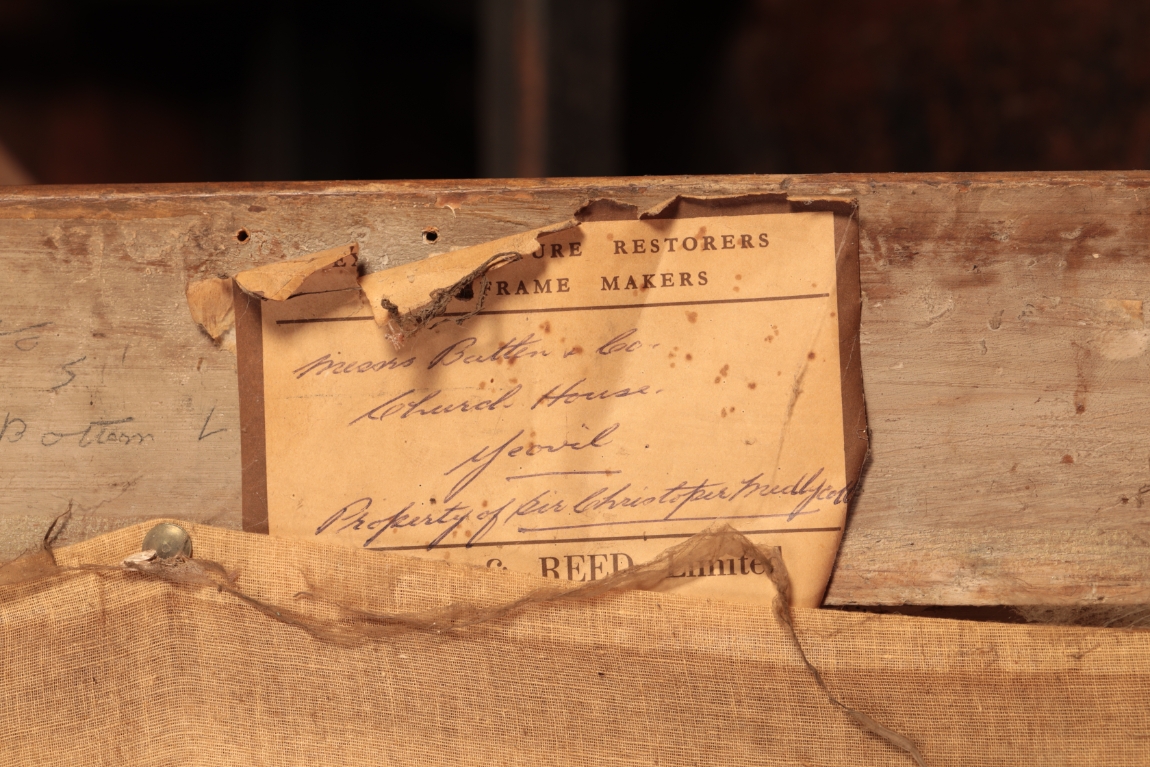 URE RESTORERS
FRAME MAKERS
Messrs Batten & Co.
Church House.
Yeovil.
Property of Sir Christoper Medlycott
& REED Limited
Bottom L